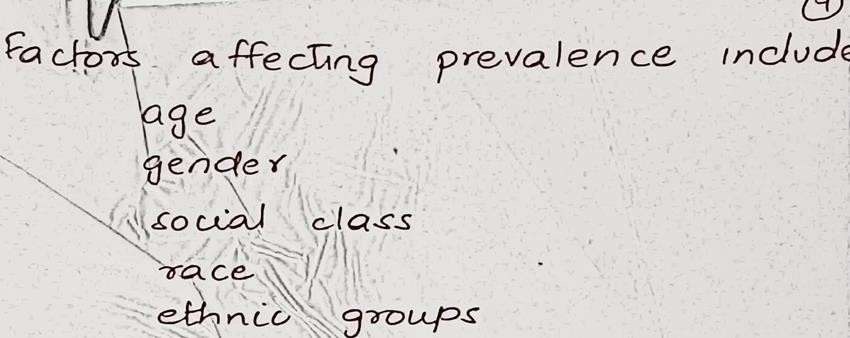 Factors affecting prevalence include
age
gender
social class
race
ethnic groups